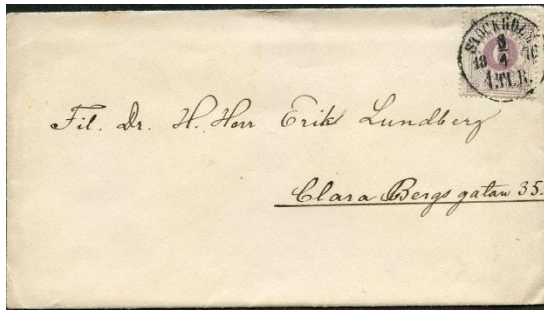 STOCKHOLM
18 4 76
4.TUR.
Fil. Dr. H. Herr Erik Lundberg
Clara Bergsgatan 35.